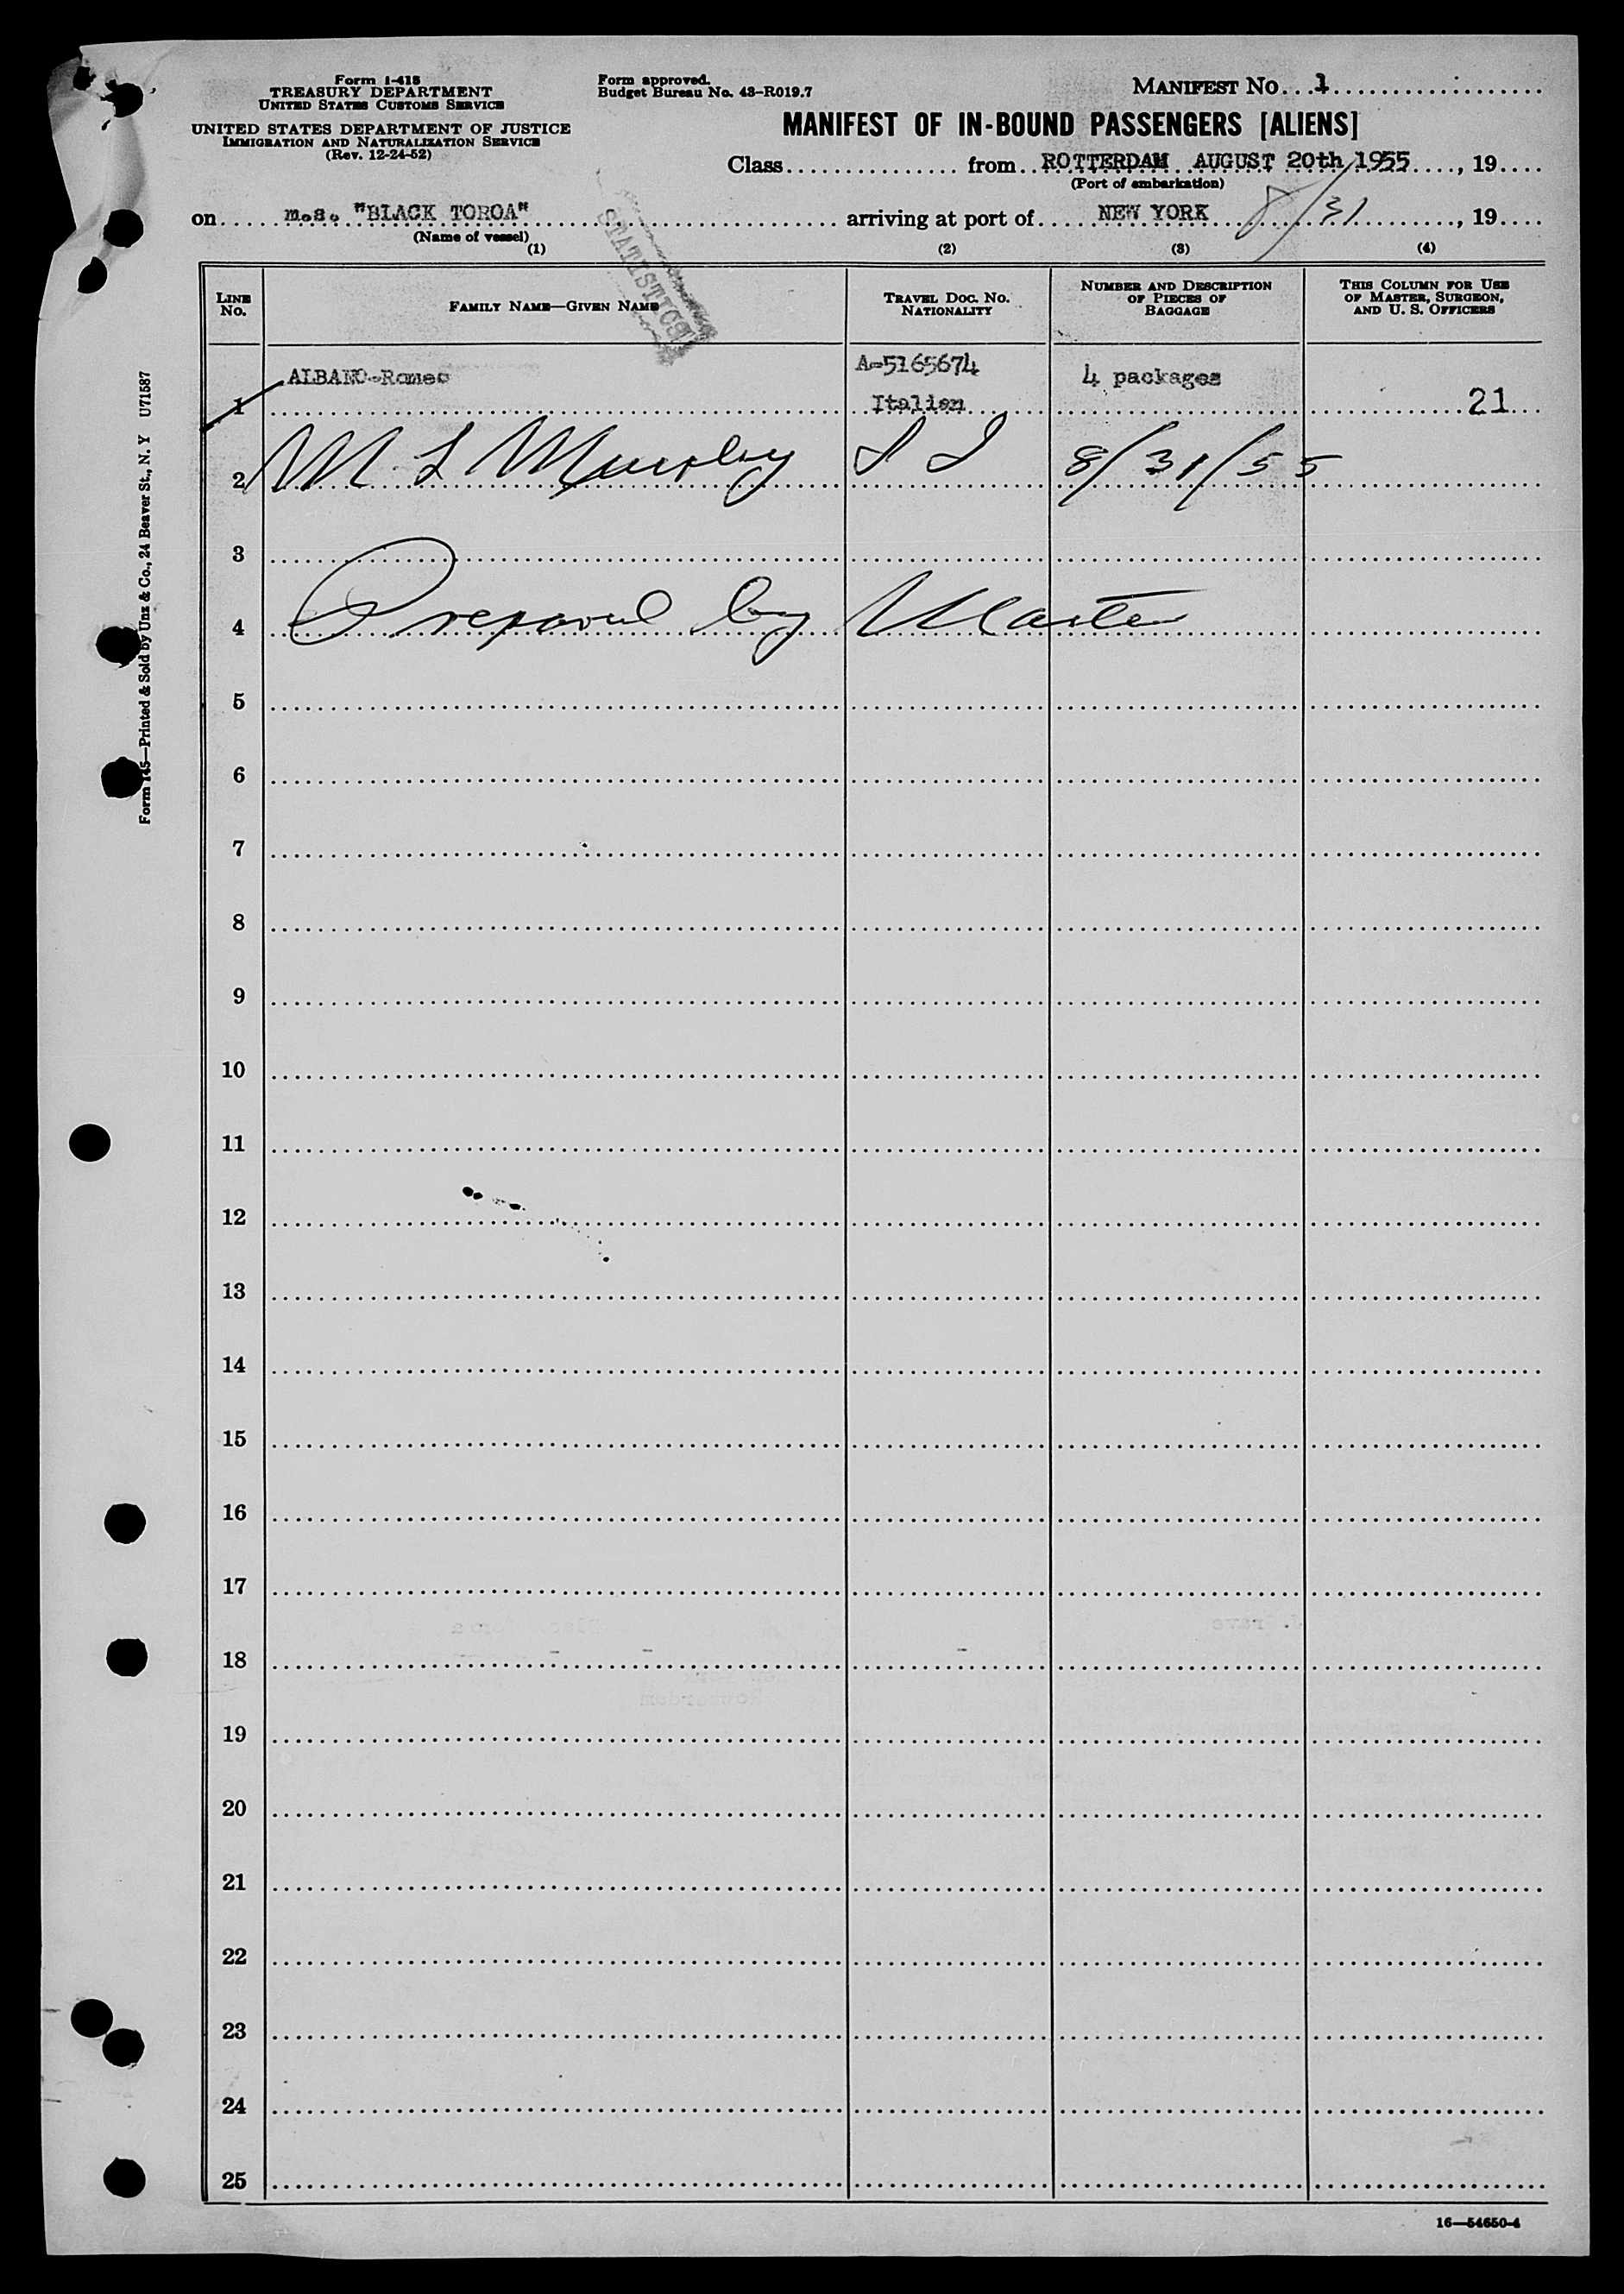 Form I-418
TREASURY DEPARTMENT
UNITED STATES CUSTOMS SERVICE
UNITED STATES DEPARTMENT OF JUSTICE
IMMIGRATION AND NATURALIZATION SERVICE
(Rev. 12-24-52)
Form approved.
Budget Bureau No. 43-R019.7
MANIFEST NO. 1
MANIFEST OF IN-BOUND PASSENGERS [ALIENS]
Class from ROTTERDAM AUGUST 20th 1955, 19
(Port of embarkation)
on m.s. "BLACK TOROA" arriving at port of NEW YORK 8/31, 19
(Name of vessel)
(1) (2) (3) (4)
STATISTICS
LINE NO. FAMILY NAME—GIVEN NAME TRAVEL DOC. NO. NATIONALITY NUMBER AND DESCRIPTION OF PIECES OF BAGGAGE THIS COLUMN FOR USE OF MASTER, SURGEON, AND U. S. OFFICERS
ALBANO-Romeo A-5165674 4 packages
1 Italian 21
2 M L Murphy I I 8/31/55
3
4 Prepared by Master
5
6
7
8
9
10
11
12
13
14
15
16
17
18
19
20
21
22
23
24
25
Form 145—Printed & Sold by Unz & Co., 24 Beaver St., N. Y U71587
16—54650-4